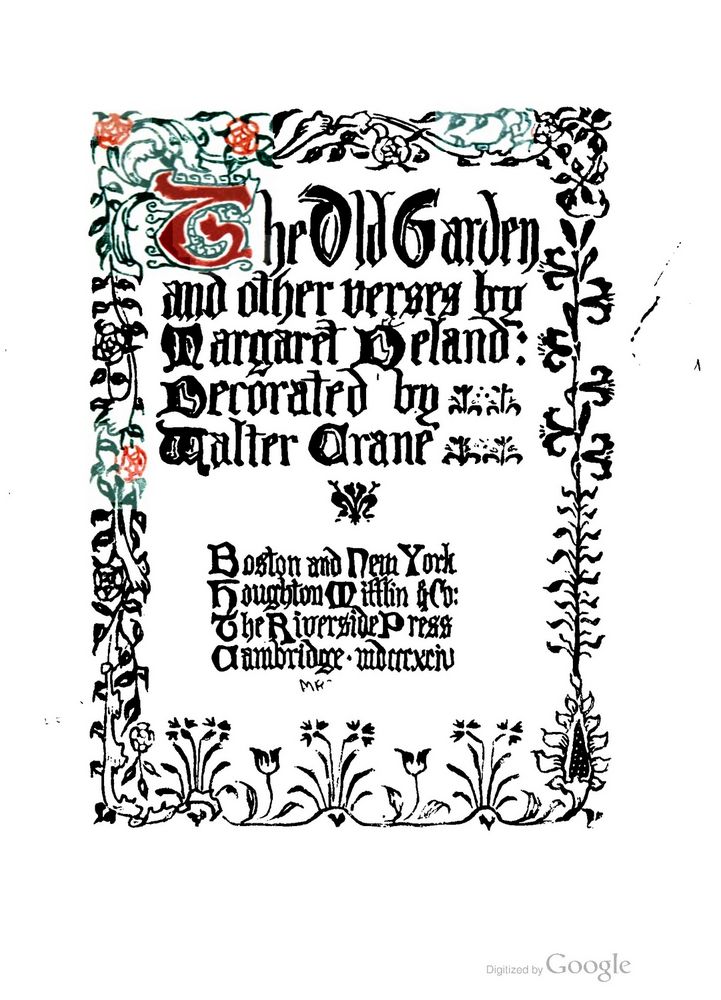 The Old Garden
and other verses by
Margaret Deland:
Decorated by
Walter Crane
Boston and New York
Houghton Mifflin & Co:
The Riverside Press
Cambridge · mdcccxciv
Digitized by Google